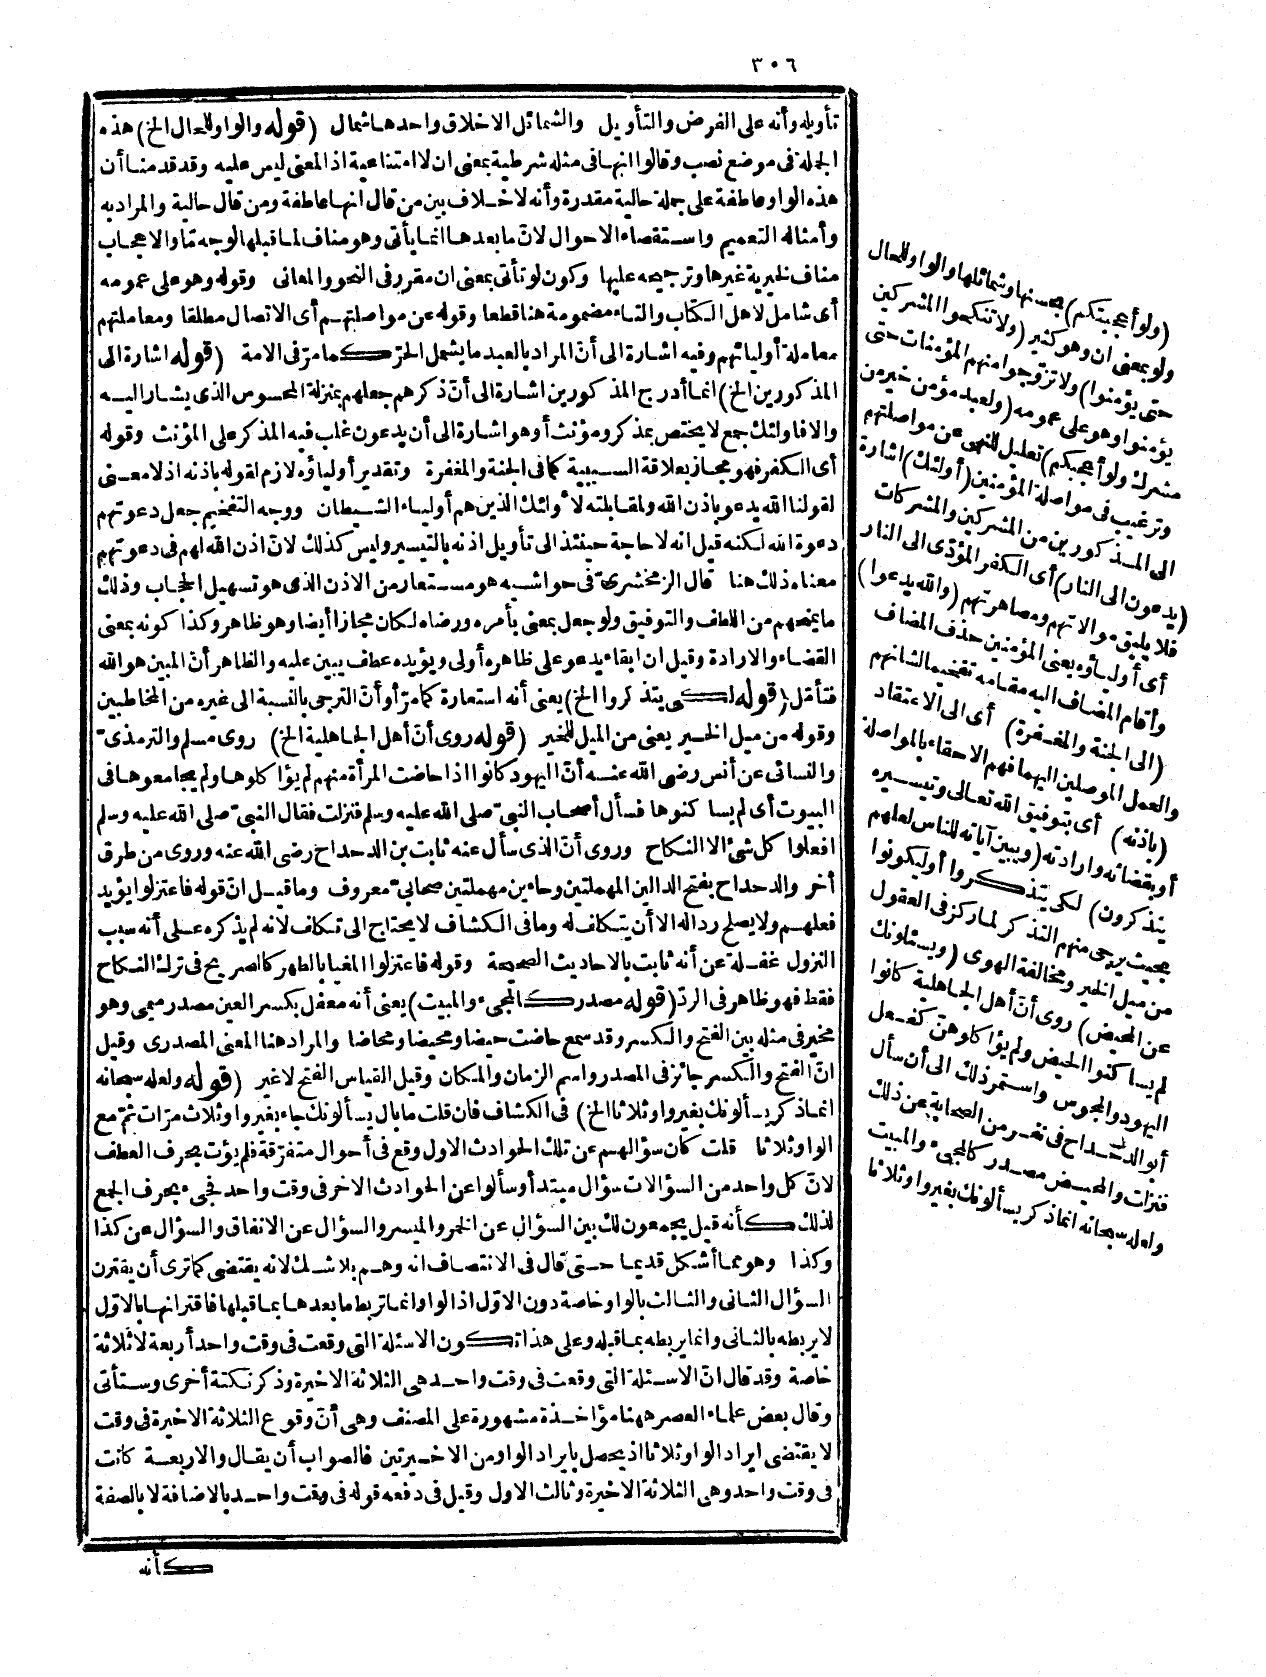 ٣٠٦
تأويله وأنه على الفرض والتأويل والشمائل الاخلاق واحدها شمال (قوله والواو للحال الخ) هذه
الجملة فى موضع نصب وقالوا انها فى مثله شرطية بمعنى ان لا امتناعية اذ المعنى ليس عليه وقد قدمنا أن
هذه الواو عاطفة على جملة حالية مقدرة وأنه لا خلاف بين من قال انها عاطفة ومن قال حالية والمراد به
وأمثاله التعميم واستقصاء الاحوال لان ما بعدها انما يأتى وهو مناف لما قبلها لوجه ما والاعجاب
مناف لخيرية غيرها وترجيحه عليها وكون لو تأتى بمعنى ان مقرر فى النحو والمعانى وقوله وهو على عمومه
أى شامل لاهل الكتاب والتاء مضمومة هنا قطعا وقوله عن مواصلتهم أى الاتصال مطلقا ومعاملتهم
معاملة أوليائهم وفيه اشارة الى أنّ المراد بالعبد ما يشمل الحرّ كما مرّ فى الامة (قوله اشارة الى
المذكورين الخ) انما أدرج المذكورين اشارة الى أنّ ذكرهم جعلهم بمنزلة المحسوس الذى يشار اليه
والا فاولئك جمع لا يختص بمذكر ومؤنث أو هو اشارة الى أن يدعون غلب فيه المذكر على المؤنث وقوله
أى الكفر فهو مجاز بعلاقة السببية كما فى الجنة والمغفرة وتقدير أولياؤه لازم لقوله باذنه اذ لا معنى
لقولنا الله يدعو باذن الله ولمقابلته لاولئك الذين هم أولياء الشيطان ووجه التفخيم جعل دعوتهم
دعوة الله لكنه قيل انه لا حاجة حينئذ الى تأويل اذنه بالتيسير وليس كذلك لان اذن الله لهم فى دعوتهم
معناه ذلك هنا قال الزمخشرىّ فى حواشيه هو مستعار من الاذن الذى هو تسهيل الحجاب وذلك
ما يمنحهم من اللطف والتوفيق ولو جعل بمعنى بأمره ورضاه لكان مجازا أيضا وهو ظاهر وكذا كونه بمعنى
القضاء والارادة وقيل ان ابقاء يدعو على ظاهره أولى ويؤيده عطف يبين عليه والظاهر أنّ المبين هو الله
فتأمّل (قوله لكى يتذكروا الخ) يعنى أنه استعارة كما مرّ أو أنّ الترجى بالنسبة الى غيره من المخاطبين
وقوله من ميل الخير يعنى من الميل للخير (قوله روى أنّ أهل الجاهلية الخ) روى مسلم والترمذىّ
والنسائى عن أنس رضى الله عنه أنّ اليهود كانوا اذا حاضت المرأة منهم لم يؤاكلوها ولم يجامعوها فى
البيوت أى لم يساكنوها فسأل أصحاب النبىّ صلى الله عليه وسلم فنزلت فقال النبىّ صلى الله عليه وسلم
افعلوا كل شئ الا النكاح وروى أنّ الذى سأل عنه ثابت بن الدحداح رضى الله عنه وروى من طرق
أخر والدحداح بفتح الدالين المهملتين وحاءين مهملتين صحابىّ معروف وما قيل انّ قوله فاعتزلوا يؤيد
فعلهم ولا يصلح ردا له الا أن يتكلف له وما فى الكشاف لا يحتاج الى تكلف لانه لم يذكره على أنه سبب
النزول غفلة عن أنه ثابت بالاحاديث الصحيحة وقوله فاعتزلوا المغيا بالطهر كالصريح فى ترك النكاح
فقط فهو ظاهر فى الردّ (قوله مصدر كالمجىء والمبيت) يعنى أنه مفعل بكسر العين مصدر ميمى وهو
مخير فى مثله بين الفتح والكسر وقد سمع حاضت حيضا ومحيضا ومحاضا والمراد هنا المعنى المصدرى وقيل
انّ الفتح والكسر جائز فى المصدر واسم الزمان والمكان وقيل القياس الفتح لا غير (قوله ولعله سبحانه
انما ذكر يسألونك بغير واو ثلاثا الخ) فى الكشاف فان قلت ما بال يسألونك جاء بغير واو ثلاث مرّات ثمّ مع
الواو ثلاثا قلت كان سؤالهم عن تلك الحوادث الاول وقع فى أحوال متفرّقة فلم يؤت بحرف العطف
لانّ كل واحد من السؤالات سؤال مبتدأ وسألوا عن الحوادث الاخر فى وقت واحد فجىء بحرف الجمع
لذلك كأنه قيل يجمعون لك بين السؤال عن الخمر والميسر والسؤال عن الانفاق والسؤال عن كذا
وكذا وهو مما أشكل قديما حتى قال فى الانتصاف انه وهم بلا شك لانه يقتضى كما ترى أن يقترن
السؤال الثانى والثالث بالواو خاصة دون الاوّل اذ الواو انما تربط ما بعدها بما قبلها فاقترانها بالاوّل
لا يربطه بالثانى وانما يربطه بما قبله وعلى هذا تكون الاسئلة التى وقعت فى وقت واحد أربعة لا ثلاثة
خاصة وقد قال انّ الاسئلة التى وقعت فى وقت واحد هى الثلاثة الاخيرة وذكر نكتة أخرى وستأتى
وقال بعض علماء العصر ههنا مؤاخذة مشهورة على المصنف وهى أنّ وقوع الثلاثة الاخيرة فى وقت
لا يقتضى ايراد الواو ثلاثا اذ يحصل بايراد الواو من الاخيرتين فالصواب أن يقال والاربعة كانت
فى وقت واحد وهى الثلاثة الاخيرة وثالث الاول وقيل فى دفعه قوله فى وقت واحد بالاضافة لا بالصفة
كأنه
(ولو أعجبتكم) بحسنها وشمائلها والواو للحال
ولو بمعنى ان وهو كثير (ولا تنكحوا المشركين
حتى يؤمنوا) ولا تزوّجوا منهم المؤمنات حتى
يؤمنوا وهو على عمومه (ولعبد مؤمن خير من
مشرك ولو أعجبكم) تعليل للنهى عن مواصلتهم
وترغيب فى مواصلة المؤمنين (أولئك) اشارة
الى المذكورين من المشركين والمشركات
(يدعون الى النار) أى الكفر المؤدّى الى النار
فلا يليق موالاتهم ومصاهرتهم (والله يدعوا)
أى أولياؤه يعنى المؤمنين حذف المضاف
وأقام المضاف اليه مقامه تفخيما لشانهم
(الى الجنة والمغفرة) أى الى الاعتقاد
والعمل الموصلين اليهما فهم الاحقاء بالمواصلة
(باذنه) أى بتوفيق الله تعالى وتيسيره
أو بقضائه وارادته (ويبين آياته للناس لعلهم
يتذكرون) لكى يتذكروا أو ليكونوا
بحيث يرجى منهم التذكر لما ركز فى العقول
من ميل الخير ومخالفة الهوى (ويسئلونك
عن المحيض) روى أنّ أهل الجاهلية كانوا
لم يساكنوا الحيض ولم يؤاكلوهنّ كفعل
اليهود والمجوس واستمر ذلك الى أن سأل
أبو الدحداح فى نفر من الصحابة عن ذلك
فنزلت والمحيض مصدر كالمجىء والمبيت
ولعله سبحانه انما ذكر يسألونك بغير واو ثلاثا